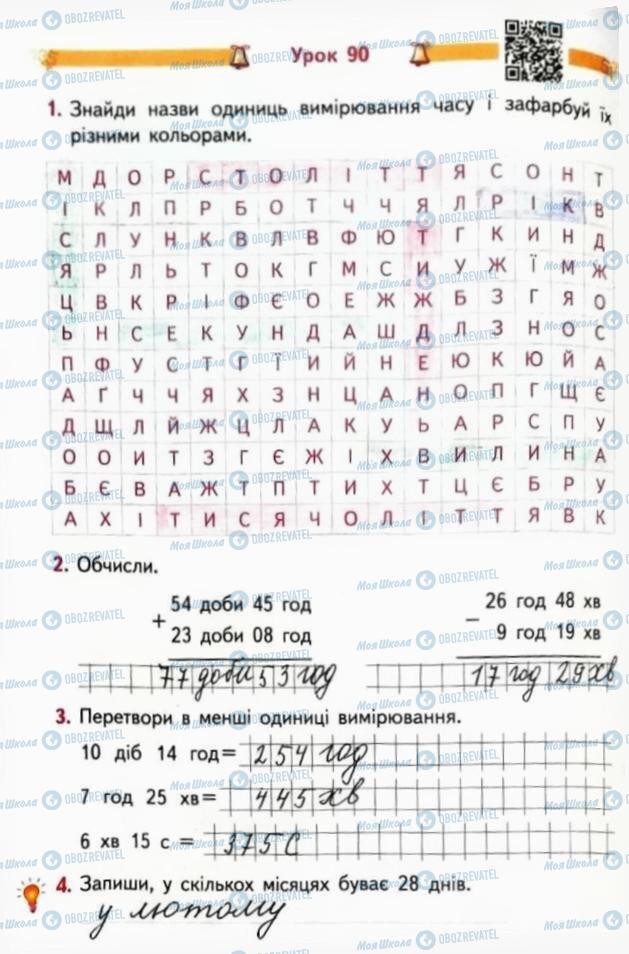 Урок 90
1. Знайди назви одиниць вимірювання часу і зафарбуй їх
різними кольорами.
М Д О Р С Т О Л І Т Т Я С О Н Т
І К Л П Р Б О Т Ч Ч Я Л Р І К В
С Л У Н К В Л В Ф Ю Т Г К И Н Д
Я Р Л Ь Т О К Г М С И У Ж Ї М Ж
Ц В К Р І Ф Є О Е Ж Ж Б З Г Я О
Ь Н С Е К У Н Д А Ш Д Л З Н О С
П Ф У С Т Г Ї И Й Н Е Ю К Ю Й А
А Ґ Ч Ч Я Х З Н Ц А Н О П Г Щ Є
Д Щ Л Й Ж Ц Л А К У Ь А Р С П У
О О И Т З Г Є Ж І Х В И Л И Н А
Б Є В А Ж Т П Т И Х Т Ц Є Б Р У
А Х І Т И С Я Ч О Л І Т Т Я В К
2. Обчисли.
+ 54 доби 45 год
23 доби 08 год
77 доби 53 год
− 26 год 48 хв
9 год 19 хв
17 год 29 хв
3. Перетвори в менші одиниці вимірювання.
10 діб 14 год = 254 год
7 год 25 хв = 445 хв
6 хв 15 с = 375 с
4. Запиши, у скількох місяцях буває 28 днів.
у лютому
Моя Школа OBOZREVATEL